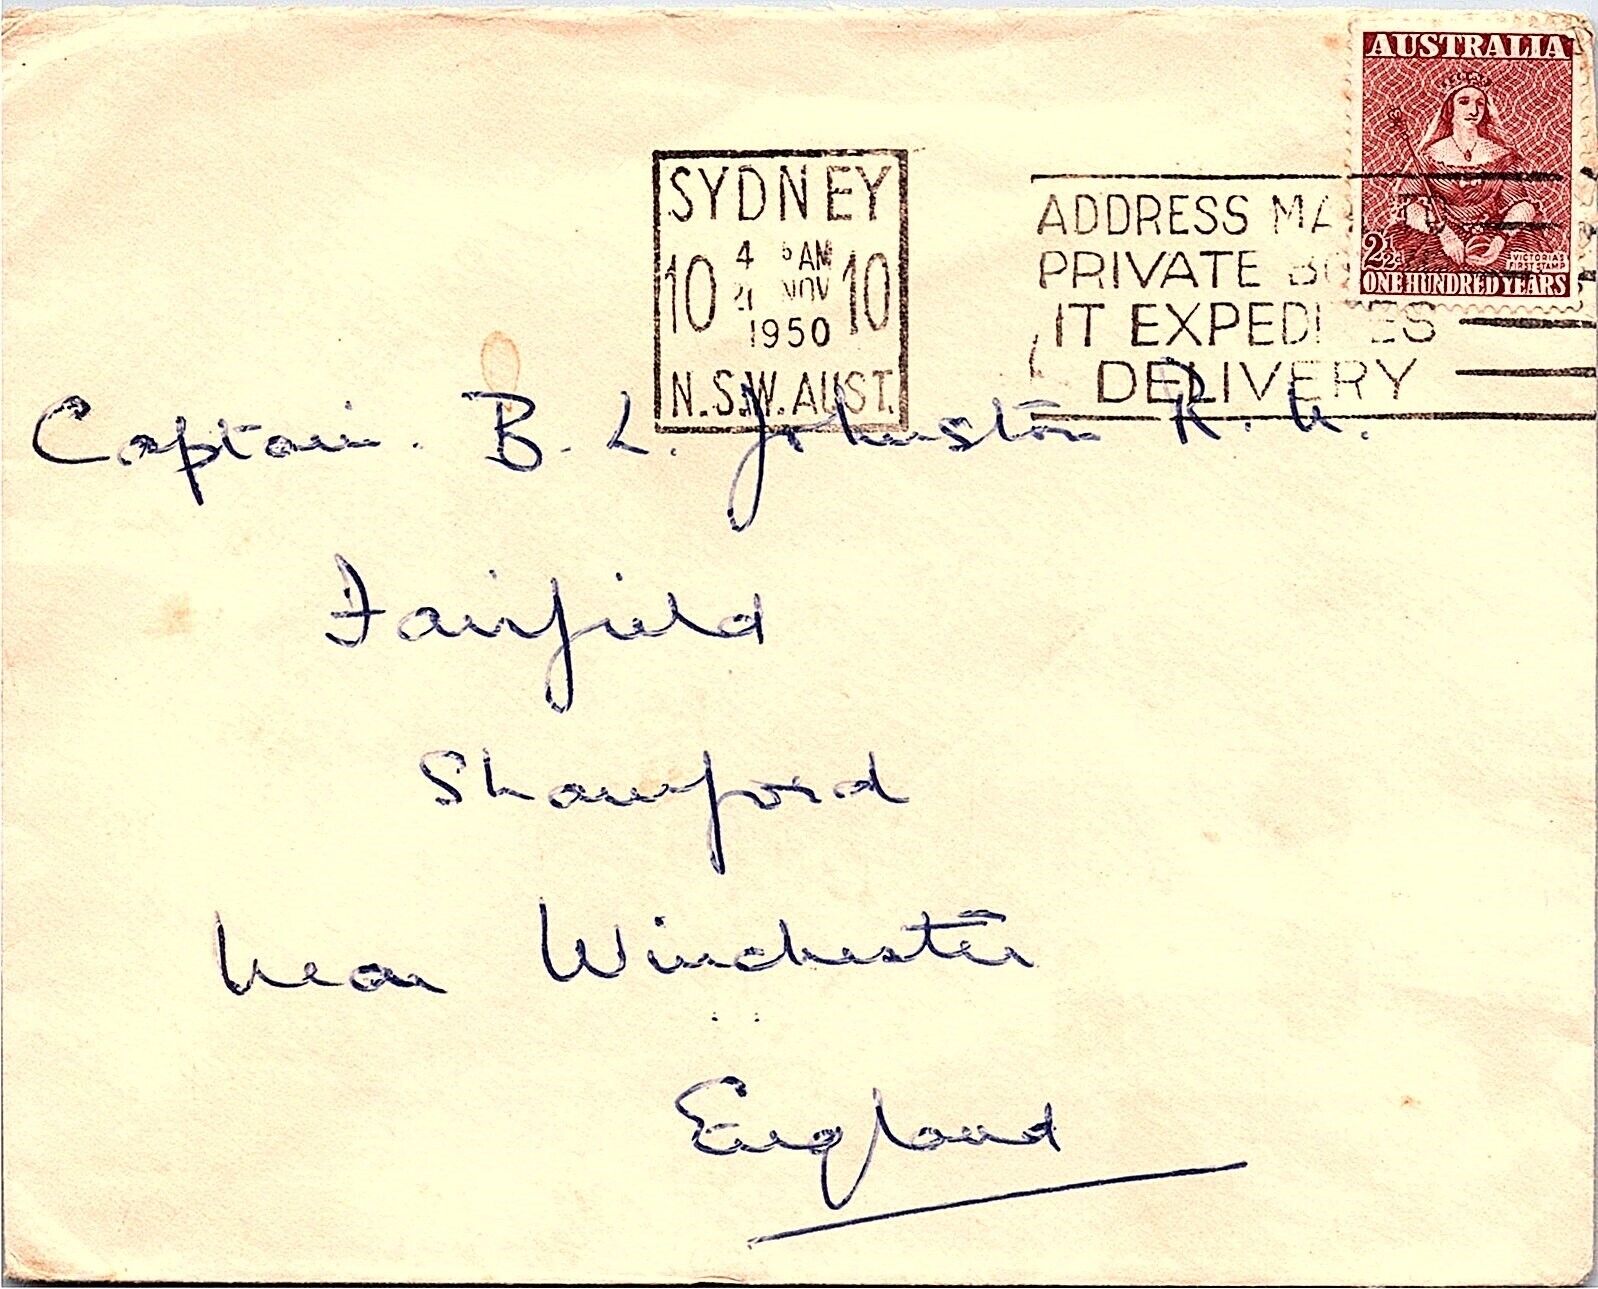 AUSTRALIA
2½d
VICTORIA'S
FIRST STAMP
ONE HUNDRED YEARS
SYDNEY
10 4 AM 10
21 NOV
1950
N.S.W. AUST.
ADDRESS TO
PRIVATE
IT
DELIVERY
Captain. B. L. Johnston R. N.
Fairfield
Shawford
Near Winchester
England